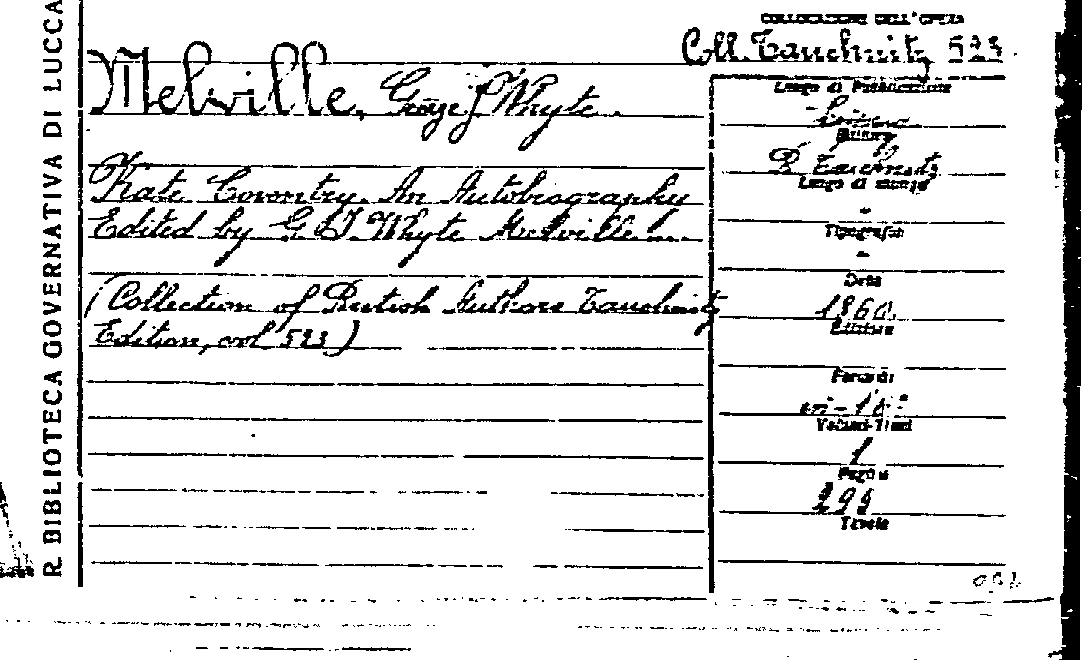 R. BIBLIOTECA GOVERNATIVA DI LUCCA
COLLOCAZIONE DELL'OPERA
Coll. Tauchnitz 523.
Melville, George J. Whyte.
Kate Coventry. An Autobiography
Edited by G. J. Whyte Melville
(Collection of British Authors Tauchnitz
Edition, vol 523)
Luogo di Pubblicazione
Editore
B. Tauchnitz
Luogo di stampa
-
Tipografia
-
Data
1860.
Edizione
Formato
in-16°
Volumi-Tomi
1
Pagine
299
Tavole